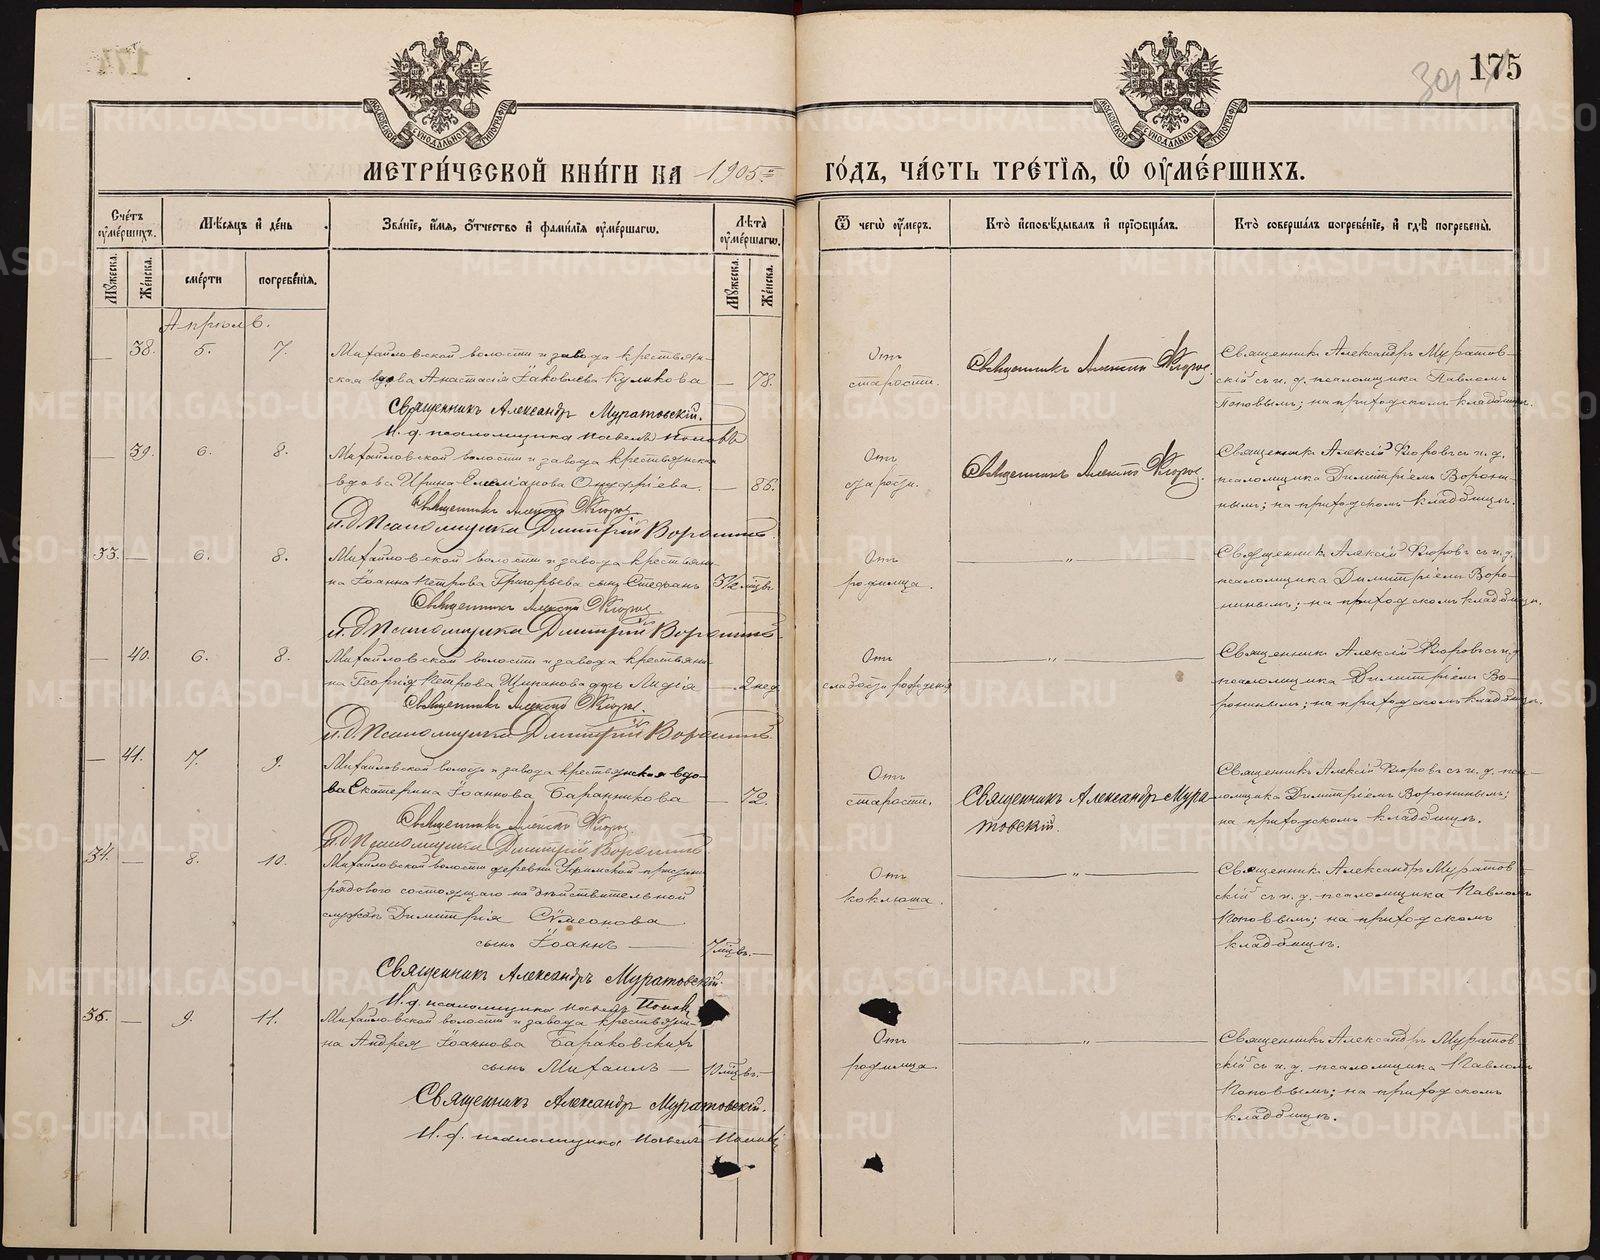 175
МЕТРИ́ЧЕСКОЙ КНИ́ГИ НА 1905 ГО́ДЪ, ЧА́СТЬ ТРЕ́ТІЯ, Ѿ ОУМЕ́РШИХЪ.
МОСКОВСКОЙ СѴНОДАЛЬНОЙ ТИПОГРАФІИ
МОСКОВСКОЙ СѴНОДАЛЬНОЙ ТИПОГРАФІИ
Сче́тъ оуме́ршихъ.
Мѣ́сяцъ и де́нь.
Зва́ніе, и́мя, о́тчество и фами́лія оуме́ршагω.
Лѣ́та оуме́ршагω.
Ѿ чегѡ̀ оу́меръ.
Кто̀ исповѣ́дывалъ и пріобща́лъ.
Кто̀ соверша́лъ погребе́ніе, и гдѣ̀ погребены̀.
Мꙋ́жеска.
Же́нска.
сме́рти
погребе́нія.
Мꙋ́жеска.
Же́нска.
Апрѣль.
38. 5. 7.
Михайловской волости и завода крестьян-
ская вдова Анастасія Іаковлева Куликова — 78.
Священникъ Александръ Муратовскій.
И. д. псаломщика Павелъ Поповъ
Отъ
старости.
Священникъ Алексій
Священникъ Александръ Муратов-
скій съ и. д. псаломщика Павломъ
Поповымъ; на приходскомъ кладбищѣ.
39. 6. 8.
Михайловской волости и завода крестьянская
вдова Ирина Емеліанова Онуфріева. — 86.
Священникъ Алексій
и. д. Псаломщика Димитрій Воронинъ.
Отъ
старости.
Священникъ Алексій
Священникъ Алексій съ и. д.
псаломщика Димитріемъ Ворони-
нымъ; на приходскомъ кладбищѣ.
33. — 6. 8.
Михайловской волости и завода крестьяни-
на Іоанна Петрова Григорьева сынъ Стефанъ 3½ мѣсц.
Священникъ Алексій
и. д. Псаломщика Димитрій Воронинъ.
Отъ
родимца.
— „ —
Священникъ Алексій съ и. д.
псаломщика Димитріемъ Воро-
нинымъ; на приходскомъ кладбищѣ.
— 40. 6. 8.
Михайловской волости и завода крестьяни-
на Георгія Петрова дочь Лидія — 2 нед.
Священникъ Алексій
и. д. Псаломщика Димитрій Воронинъ.
Отъ
слабости рожденія
— „ —
Священникъ Алексій съ и. д.
псаломщика Димитріемъ Во-
ронинымъ; на приходскомъ кладбищѣ.
— 41. 7. 9.
Михайловской волости и завода крестьянская вдо-
ва Екатерина Іоаннова Баранникова — 72.
Священникъ Алексій
И. д. Псаломщика Димитрій Воронинъ
Отъ
старости.
Священникъ Александръ Мура-
товскій.
Священникъ Алексій съ и. д. пса-
ломщика Димитріемъ Воронинымъ;
на приходскомъ кладбищѣ.
34. — 8. 10.
Михайловской волости деревни Уфимской пристани
рядового состоящаго на дѣйствительной
службѣ Димитрія Сѵмеонова
сынъ Іоаннъ — 7 мѣсц. —
Священникъ Александръ Муратовскій.
И. д. псаломщика Павелъ Поповъ
Отъ
коклюша.
— „ —
Священникъ Александръ Муратов-
скій съ и. д. псаломщика Павломъ
Поповымъ; на приходскомъ
кладбищѣ.
35. — 9. 11.
Михайловской волости и завода крестьяни-
на Андрея Іоаннова
сынъ Михаилъ — 10 мѣсц. —
Священникъ Александръ Муратовскій.
И. д. псаломщика Павелъ Поповъ
Отъ
родимца
— „ —
Священникъ Александръ Муратов
скій съ и. д. псаломщика Павлом
Поповымъ; на приходскомъ
кладбищѣ.
METRIKI.GASO-URAL.RU